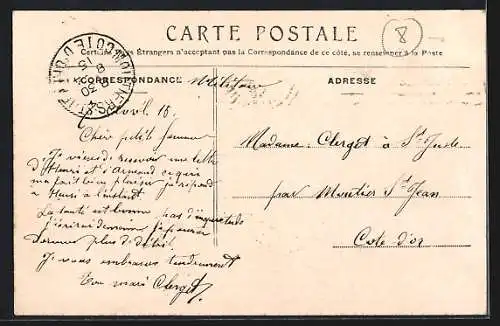 CARTE POSTALE
Certains Pays Étrangers n'acceptant pas la Correspondance de ce côté, se renseigner à la Poste
CORRESPONDANCE Militaire
ADRESSE
avril 15.
Chère petite femme
Je viens de recevoir une lettre
d'Henri et d'Armand ce qui
m'a fait bien plaisir je répond
à Henri à l'instant
La santé est bonne pas d'inquiétude
j'écrirai demain
donner plus de détail
Je vous embrasse tendrement
Ton mari Clerget
Madame Clerget à St Jude
par Moutier St Jean
Cote d'or